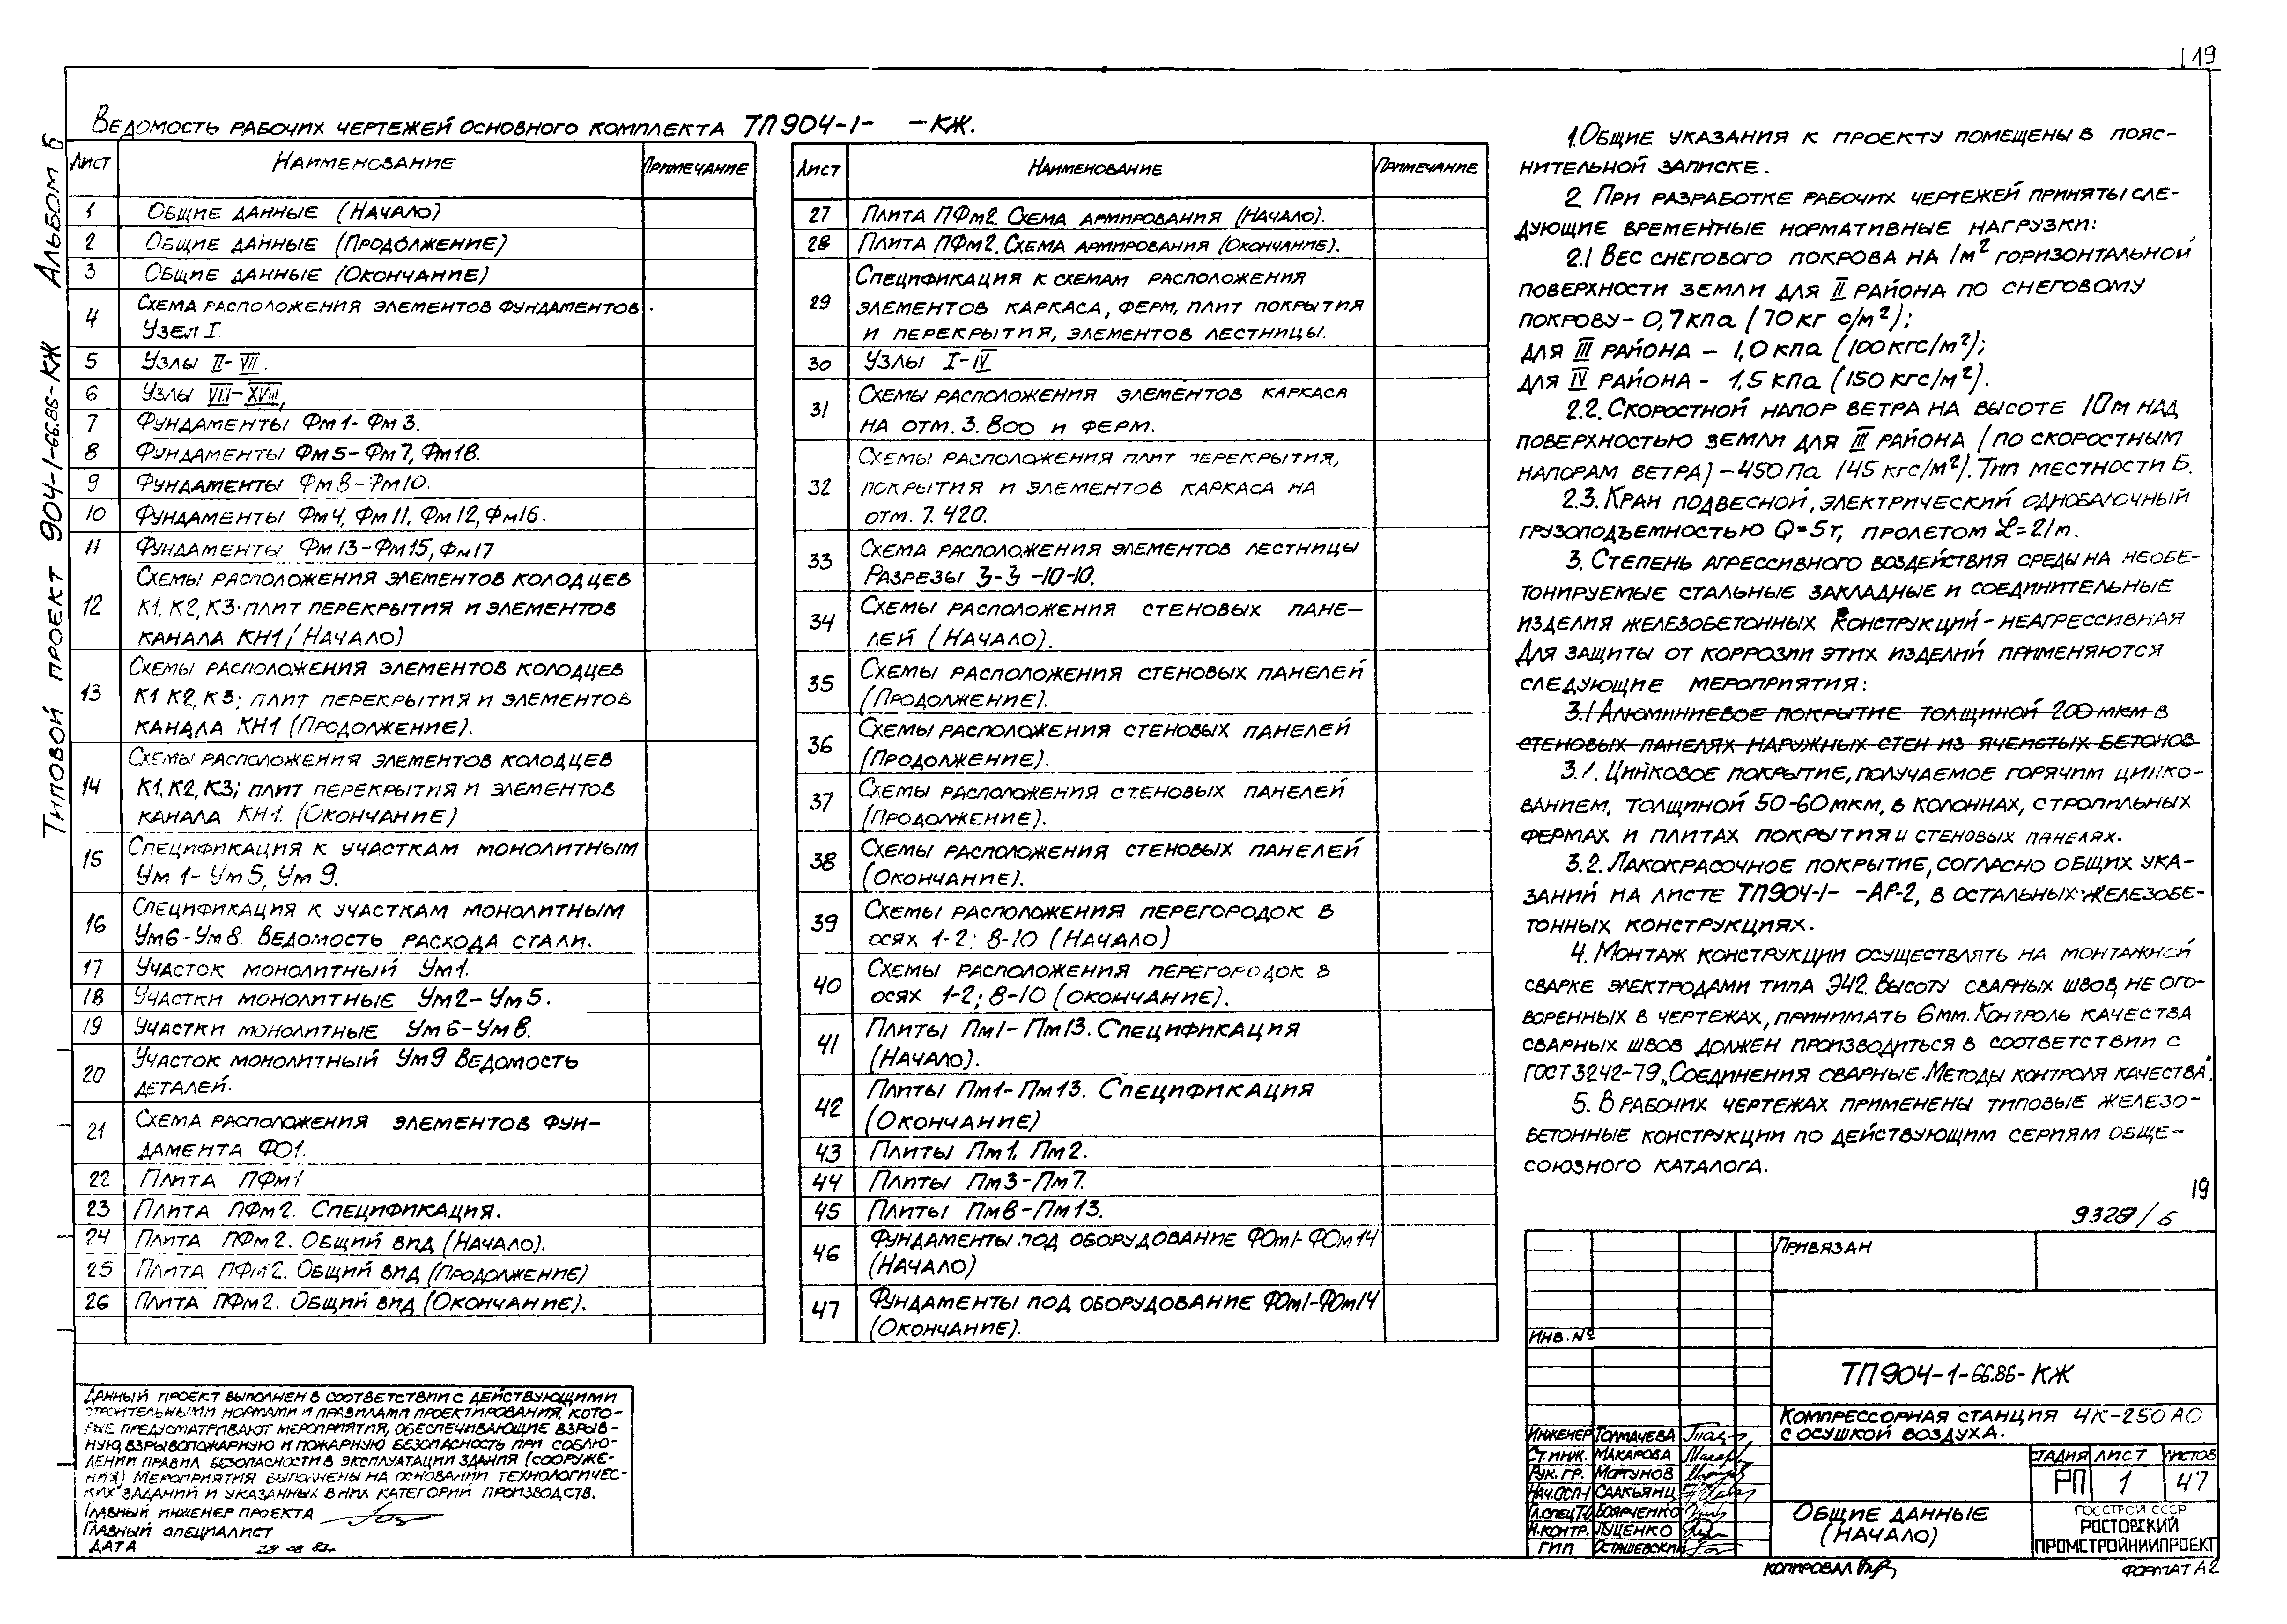 19
Типовой проект 904-1-66.86-КЖ Альбом 6
Ведомость рабочих чертежей основного комплекта ТП904-1- -КЖ.
Лист Наименование Примечание
1 Общие данные (Начало)
2 Общие данные (Продолжение)
3 Общие данные (Окончание)
4 Схема расположения элементов фундаментов.
Узел I.
5 Узлы II-VII.
6 Узлы VIII-XVIII,
7 Фундаменты Фм1-Фм3.
8 Фундаменты Фм5-Фм7, Фм18.
9 Фундаменты Фм8-Фм10.
10 Фундаменты Фм4, Фм11, Фм12, Фм16.
11 Фундаменты Фм13-Фм15, Фм17
12 Схемы расположения элементов колодцев
К1, К2, К3. плит перекрытия и элементов
канала КН1 (Начало)
13 Схемы расположения элементов колодцев
К1 К2, К3; плит перекрытия и элементов
канала КН1 (Продолжение).
14 Схемы расположения элементов колодцев
К1. К2, К3; плит перекрытия и элементов
канала КН1. (Окончание)
15 Спецификация к участкам монолитным
Ум1-Ум5, Ум9.
16 Спецификация к участкам монолитным
Ум6-Ум8. Ведомость расхода стали.
17 Участок монолитный Ум1.
18 Участки монолитные Ум2-Ум5.
19 Участки монолитные Ум6-Ум8.
20 Участок монолитный Ум9 Ведомость
деталей.
21 Схема расположения элементов фун-
дамента ФО1.
22 Плита ПФм1
23 Плита ПФм2. Спецификация.
24 Плита ПФм2. Общий вид (Начало).
25 Плита ПФм2. Общий вид (Продолжение)
26 Плита ПФм2. Общий вид (Окончание).
Лист Наименование Примечание
27 Плита ПФм2. Схема армирования (Начало).
28 Плита ПФм2. Схема армирования (Окончание).
29 Спецификация к схемам расположения
элементов каркаса, ферм, плит покрытия
и перекрытия, элементов лестницы.
30 Узлы I-IV
31 Схемы расположения элементов каркаса
на отм. 3.800 и ферм.
32 Схемы расположения плит перекрытия,
покрытия и элементов каркаса на
отм. 7.420.
33 Схема расположения элементов лестницы
Разрезы 3-3 -10-10.
34 Схемы расположения стеновых пане-
лей (Начало).
35 Схемы расположения стеновых панелей
(Продолжение).
36 Схемы расположения стеновых панелей
(Продолжение).
37 Схемы расположения стеновых панелей
(Продолжение).
38 Схемы расположения стеновых панелей
(Окончание).
39 Схемы расположения перегородок в
осях 1-2; 8-10 (Начало)
40 Схемы расположения перегородок в
осях 1-2; 8-10 (окончание).
41 Плиты Пм1-Пм13. Спецификация
(Начало).
42 Плиты Пм1-Пм13. Спецификация
(Окончание)
43 Плиты Пм1. Пм2.
44 Плиты Пм3-Пм7.
45 Плиты Пм8-Пм13.
46 Фундаменты под оборудование ФОм1-ФОм14
(Начало)
47 Фундаменты под оборудование ФОм1-ФОм14
(Окончание).
1.Общие указания к проекту помещены в пояс-
нительной записке.
2. При разработке рабочих чертежей приняты сле-
дующие временные нормативные нагрузки:
2.1 Вес снегового покрова на 1м² горизонтальной
поверхности земли для II района по снеговому
покрову - 0,7кпа (70кг с/м²);
для III района - 1,0кпа (100кгс/м²);
для IV района - 1,5кпа (150кгс/м²).
2.2. Скоростной напор ветра на высоте 10м над
поверхностью земли для III района (по скоростным
напорам ветра) - 450Па (45кгс/м²). Тип местности Б.
2.3. Кран подвесной, электрический однобалочный
грузоподъемностью Q=5т, пролетом L=21м.
3. Степень агрессивного воздействия среды на необе-
тонируемые стальные закладные и соединительные
изделия железобетонных конструкций - неагрессивная.
Для защиты от коррозии этих изделий применяются
следующие мероприятия:
3.1 Алюминиевое покрытие толщиной 200мкм в
стеновых панелях наружных стен из ячеистых бетонов
3.1. Цинковое покрытие, получаемое горячим цинко-
ванием, толщиной 50-60мкм, в колоннах, стропильных
фермах и плитах покрытия и стеновых панелях.
3.2. Лакокрасочное покрытие, согласно общих ука-
заний на листе ТП904-1- -АР-2, в остальных железобе-
тонных конструкциях.
4. Монтаж конструкции осуществлять на монтажной
сварке электродами типа Э42. Высоту сварных швов, не ого-
воренных в чертежах, принимать 6мм. Контроль качества
сварных швов должен производиться в соответствии с
ГОСТ 3242-79 „Соединения сварные. Методы контроля качества".
5. В рабочих чертежах применены типовые железо-
бетонные конструкции по действующим сериям обще-
союзного каталога.
19
9328/6
Данный проект выполнен в соответствии с действующими
строительными нормами и правилами проектирования, кото-
рые предусматривают мероприятия, обеспечивающие взрыв-
ную, взрывопожарную и пожарную безопасность при соблю-
дении правил безопасности в эксплуатации здания (сооруже-
ния) Мероприятия выполнены на основании технологичес-
ких заданий и указанных в них категорий производств.
Главный инженер проекта
Главный специалист
Дата 28 08 83г
Привязан
Инв. №
ТП904-1-66.86-КЖ
Компрессорная станция 4К-250АО
с осушкой воздуха.
Инженер Толмачева
Ст.инж. Макарова
Рук. гр. Моргунов
Нач.ОСП-1 Саакьянц
Гл.спец.Т.О. Боярченко
Н.контр. Луценко
ГИП Осташевский
Стадия Лист Листов
РП 1 47
Общие данные
(Начало)
Госстрой СССР
Ростовский
Промстройниипроект
Копировал
Формат А2